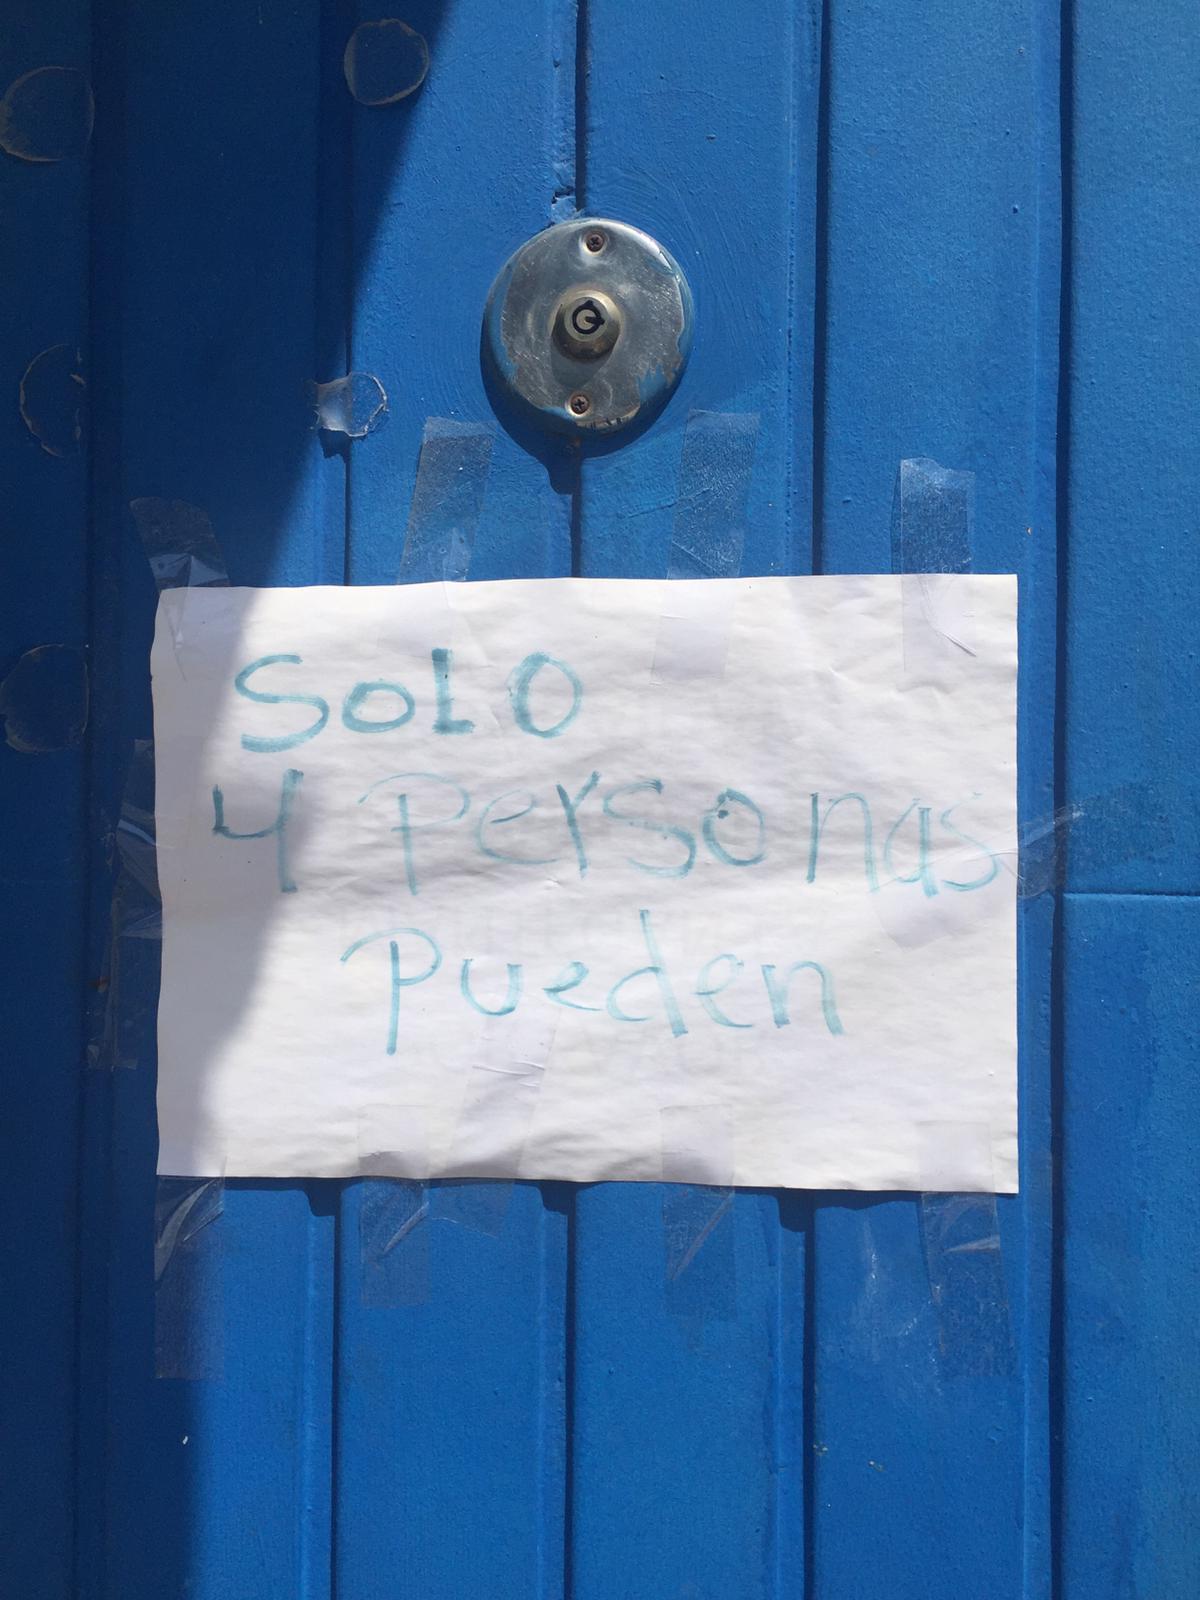 SoLO
4 Personas
Pueden